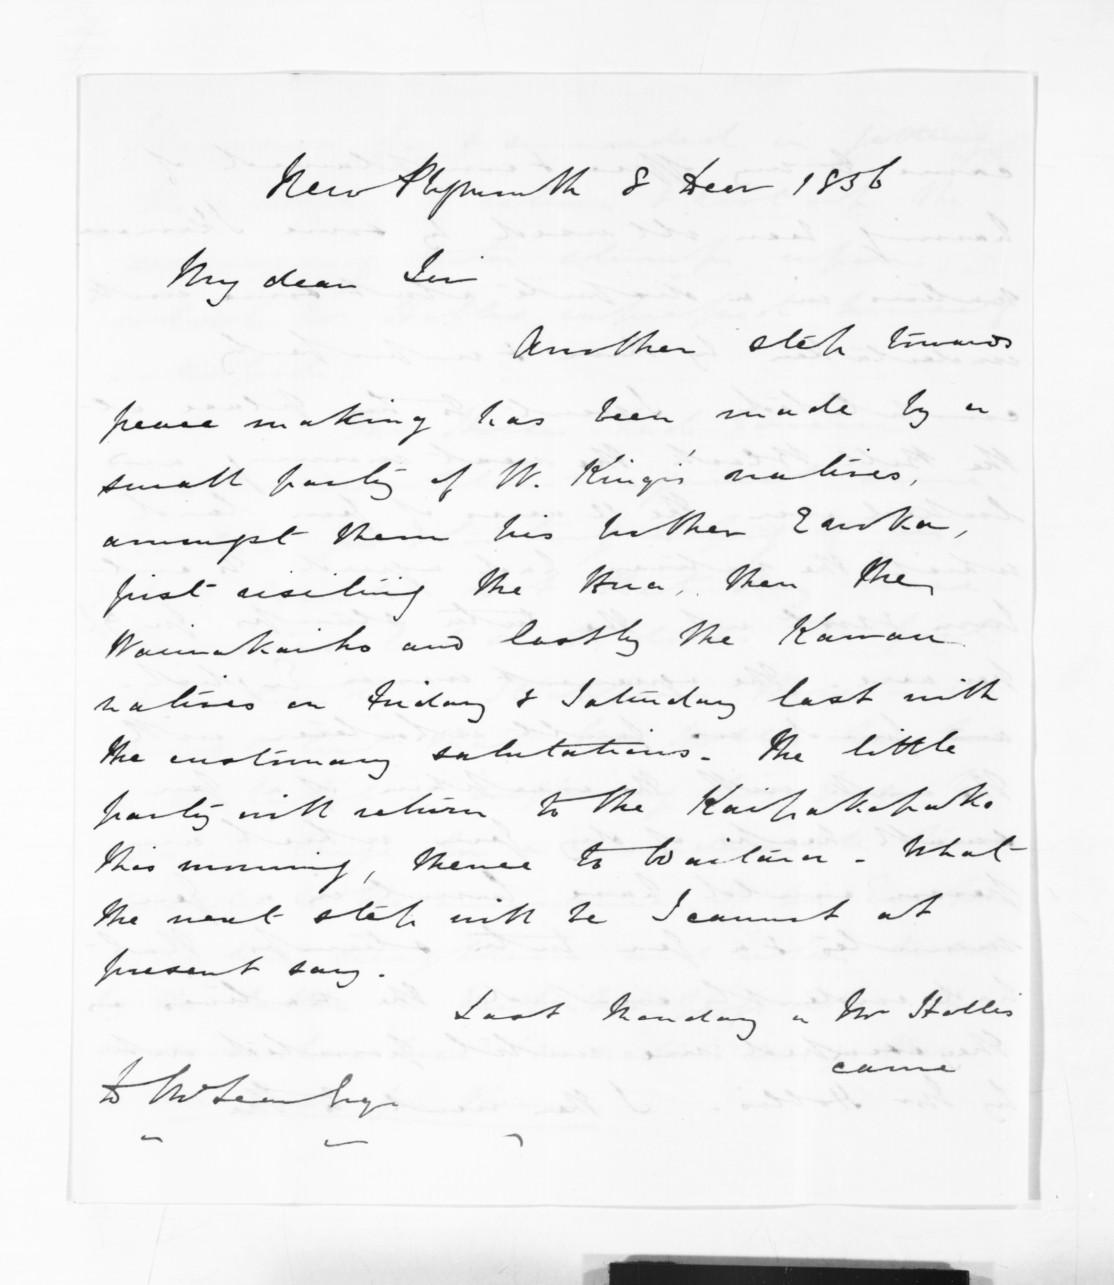 New Plymouth 8 Decr 1856
My dear Sir
Another step towards
peace making has been made by a
small party of W. Kingi's natives,
amongst them his brother Enoka,
first visiting the Hua, then the
Waiwakaiho and lastly the Kawau
natives on Friday & Saturday last with
the customary salutations. The little
party will return to the Kaipakopako
this morning, thence to Waitara. What
the next step will be I cannot at
present say.
Last Monday a Mr Hollis
came
D McLean Esqr